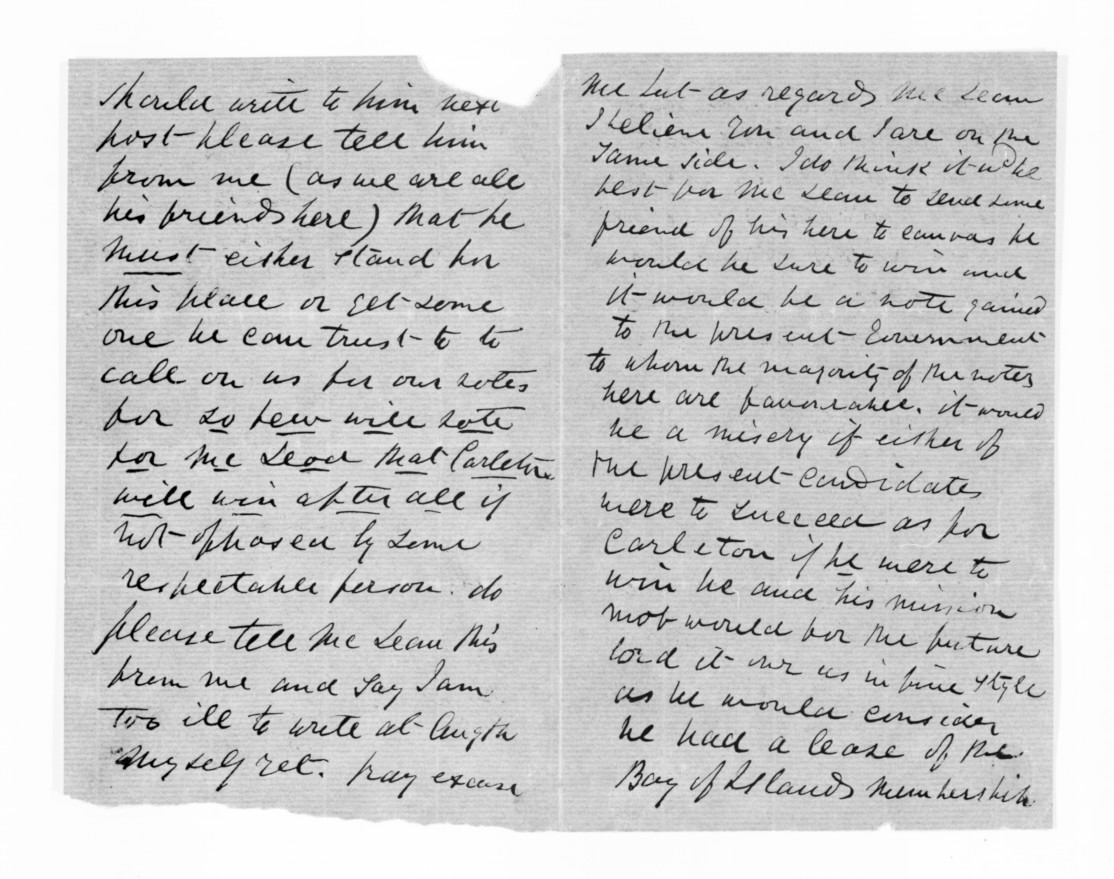 should write to him next
post please tell him
from me (as we are all
his friends here) that he
must either stand for
this place or get some
one he can trust to to
call on us for our votes
for so few will vote
for Mc Leod that Carleton
will win after all if
not opposed by some
respectable person. do
please tell Mc Lean this
from me and say I am
too ill to write at length
myself yet. pray excuse
me but as regards Mc Lean
I believe you and I are on the
same side. I do think it wd be
best for Mc Lean to send some
friend of his here to canvas he
would be sure to win and
it would be a vote gained
to the present Government
to whom the majority of the votes
here are favorable. it would
be a misery if either of
the present candidates
were to succeed as for
Carleton if he were to
win he and his mission
mob would for the future
lord it over us in fine style
as he would consider
he had a lease of the
Bay of Islands membership